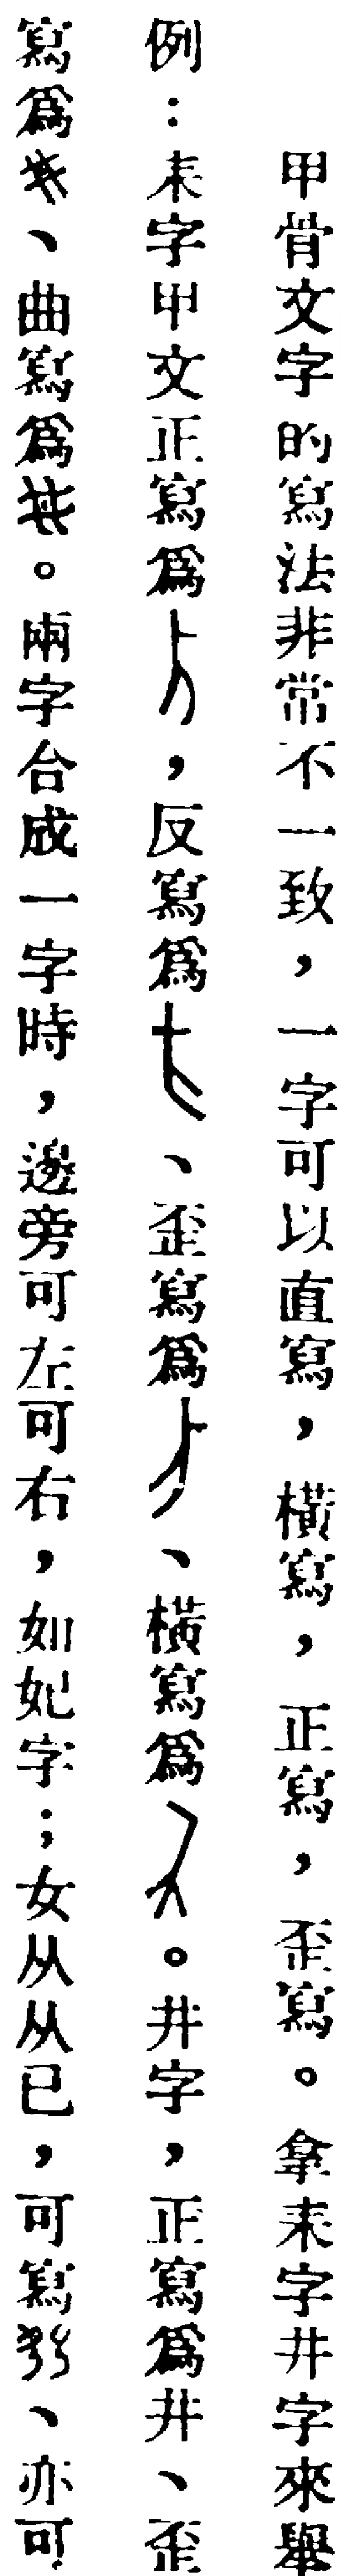 甲骨文字的寫法非常不一致，一字可以直寫，橫寫，正寫，歪寫。拿耒字井字來舉
例：耒字甲文正寫爲，反寫爲、歪寫爲、橫寫爲。井字，正寫爲井、歪
寫爲、曲寫爲。兩字合成一字時，邊旁可左可右，如妃字；女从从巳，可寫、亦可